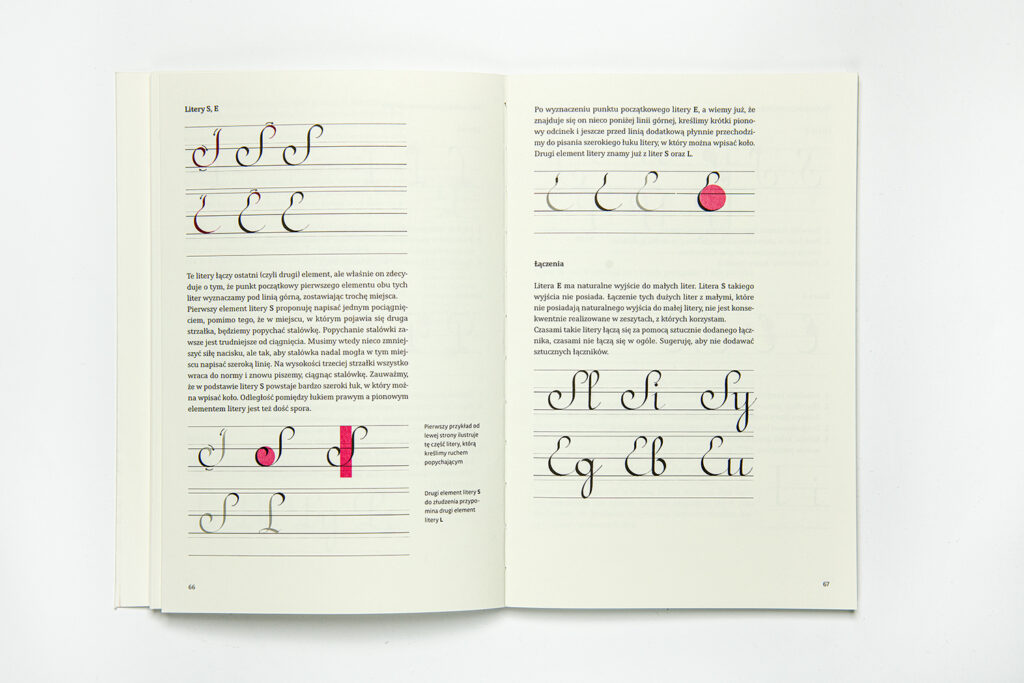 Litery S, E
S S S
E E E
Te litery łączy ostatni (czyli drugi) element, ale właśnie on zdecy-
duje o tym, że punkt początkowy pierwszego elementu obu tych
liter wyznaczamy pod linią górną, zostawiając trochę miejsca.
Pierwszy element litery S proponuję napisać jednym pociągnię-
ciem, pomimo tego, że w miejscu, w którym pojawia się druga
strzałka, będziemy popychać stalówkę. Popychanie stalówki za-
wsze jest trudniejsze od ciągnięcia. Musimy wtedy nieco zmniej-
szyć siłę nacisku, ale tak, aby stalówka nadal mogła w tym miej-
scu napisać szeroką linię. Na wysokości trzeciej strzałki wszystko
wraca do normy i znowu piszemy, ciągnąc stalówkę. Zauważmy,
że w podstawie litery S powstaje bardzo szeroki łuk, w który moż-
na wpisać koło. Odległość pomiędzy łukiem prawym a pionowym
elementem litery jest też dość spora.
S S S
Pierwszy przykład od
lewej strony ilustruje
tę część litery, którą
kreślimy ruchem
popychającym
S L
Drugi element litery S
do złudzenia przypo-
mina drugi element
litery L
66
Po wyznaczeniu punktu początkowego litery E, a wiemy już, że
znajduje się on nieco poniżej linii górnej, kreślimy krótki piono-
wy odcinek i jeszcze przed linią dodatkową płynnie przechodzi-
my do pisania szerokiego łuku litery, w który można wpisać koło.
Drugi element litery znamy już z liter S oraz L.
E E E E
Łączenia
Litera E ma naturalne wyjście do małych liter. Litera S takiego
wyjścia nie posiada. Łączenie tych dużych liter z małymi, które
nie posiadają naturalnego wyjścia do małej litery, nie jest konse-
kwentnie realizowane w zeszytach, z których korzystam.
Czasami takie litery łączą się za pomocą sztucznie dodanego łącz-
nika, czasami nie łączą się w ogóle. Sugeruję, aby nie dodawać
sztucznych łączników.
Sl Si Sy
Eg Eb Eu
67